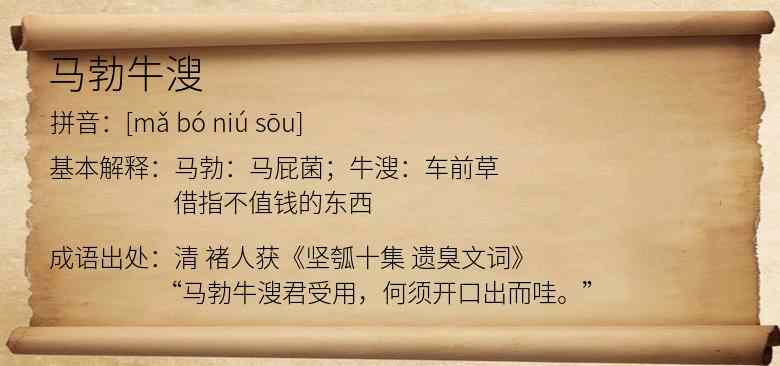 马勃牛溲
拼音：[mǎ bó niú sōu]
基本解释：马勃：马屁菌；牛溲：车前草
借指不值钱的东西
成语出处：清 褚人获《坚瓠十集 遗臭文词》
“马勃牛溲君受用，何须开口出而哇。”